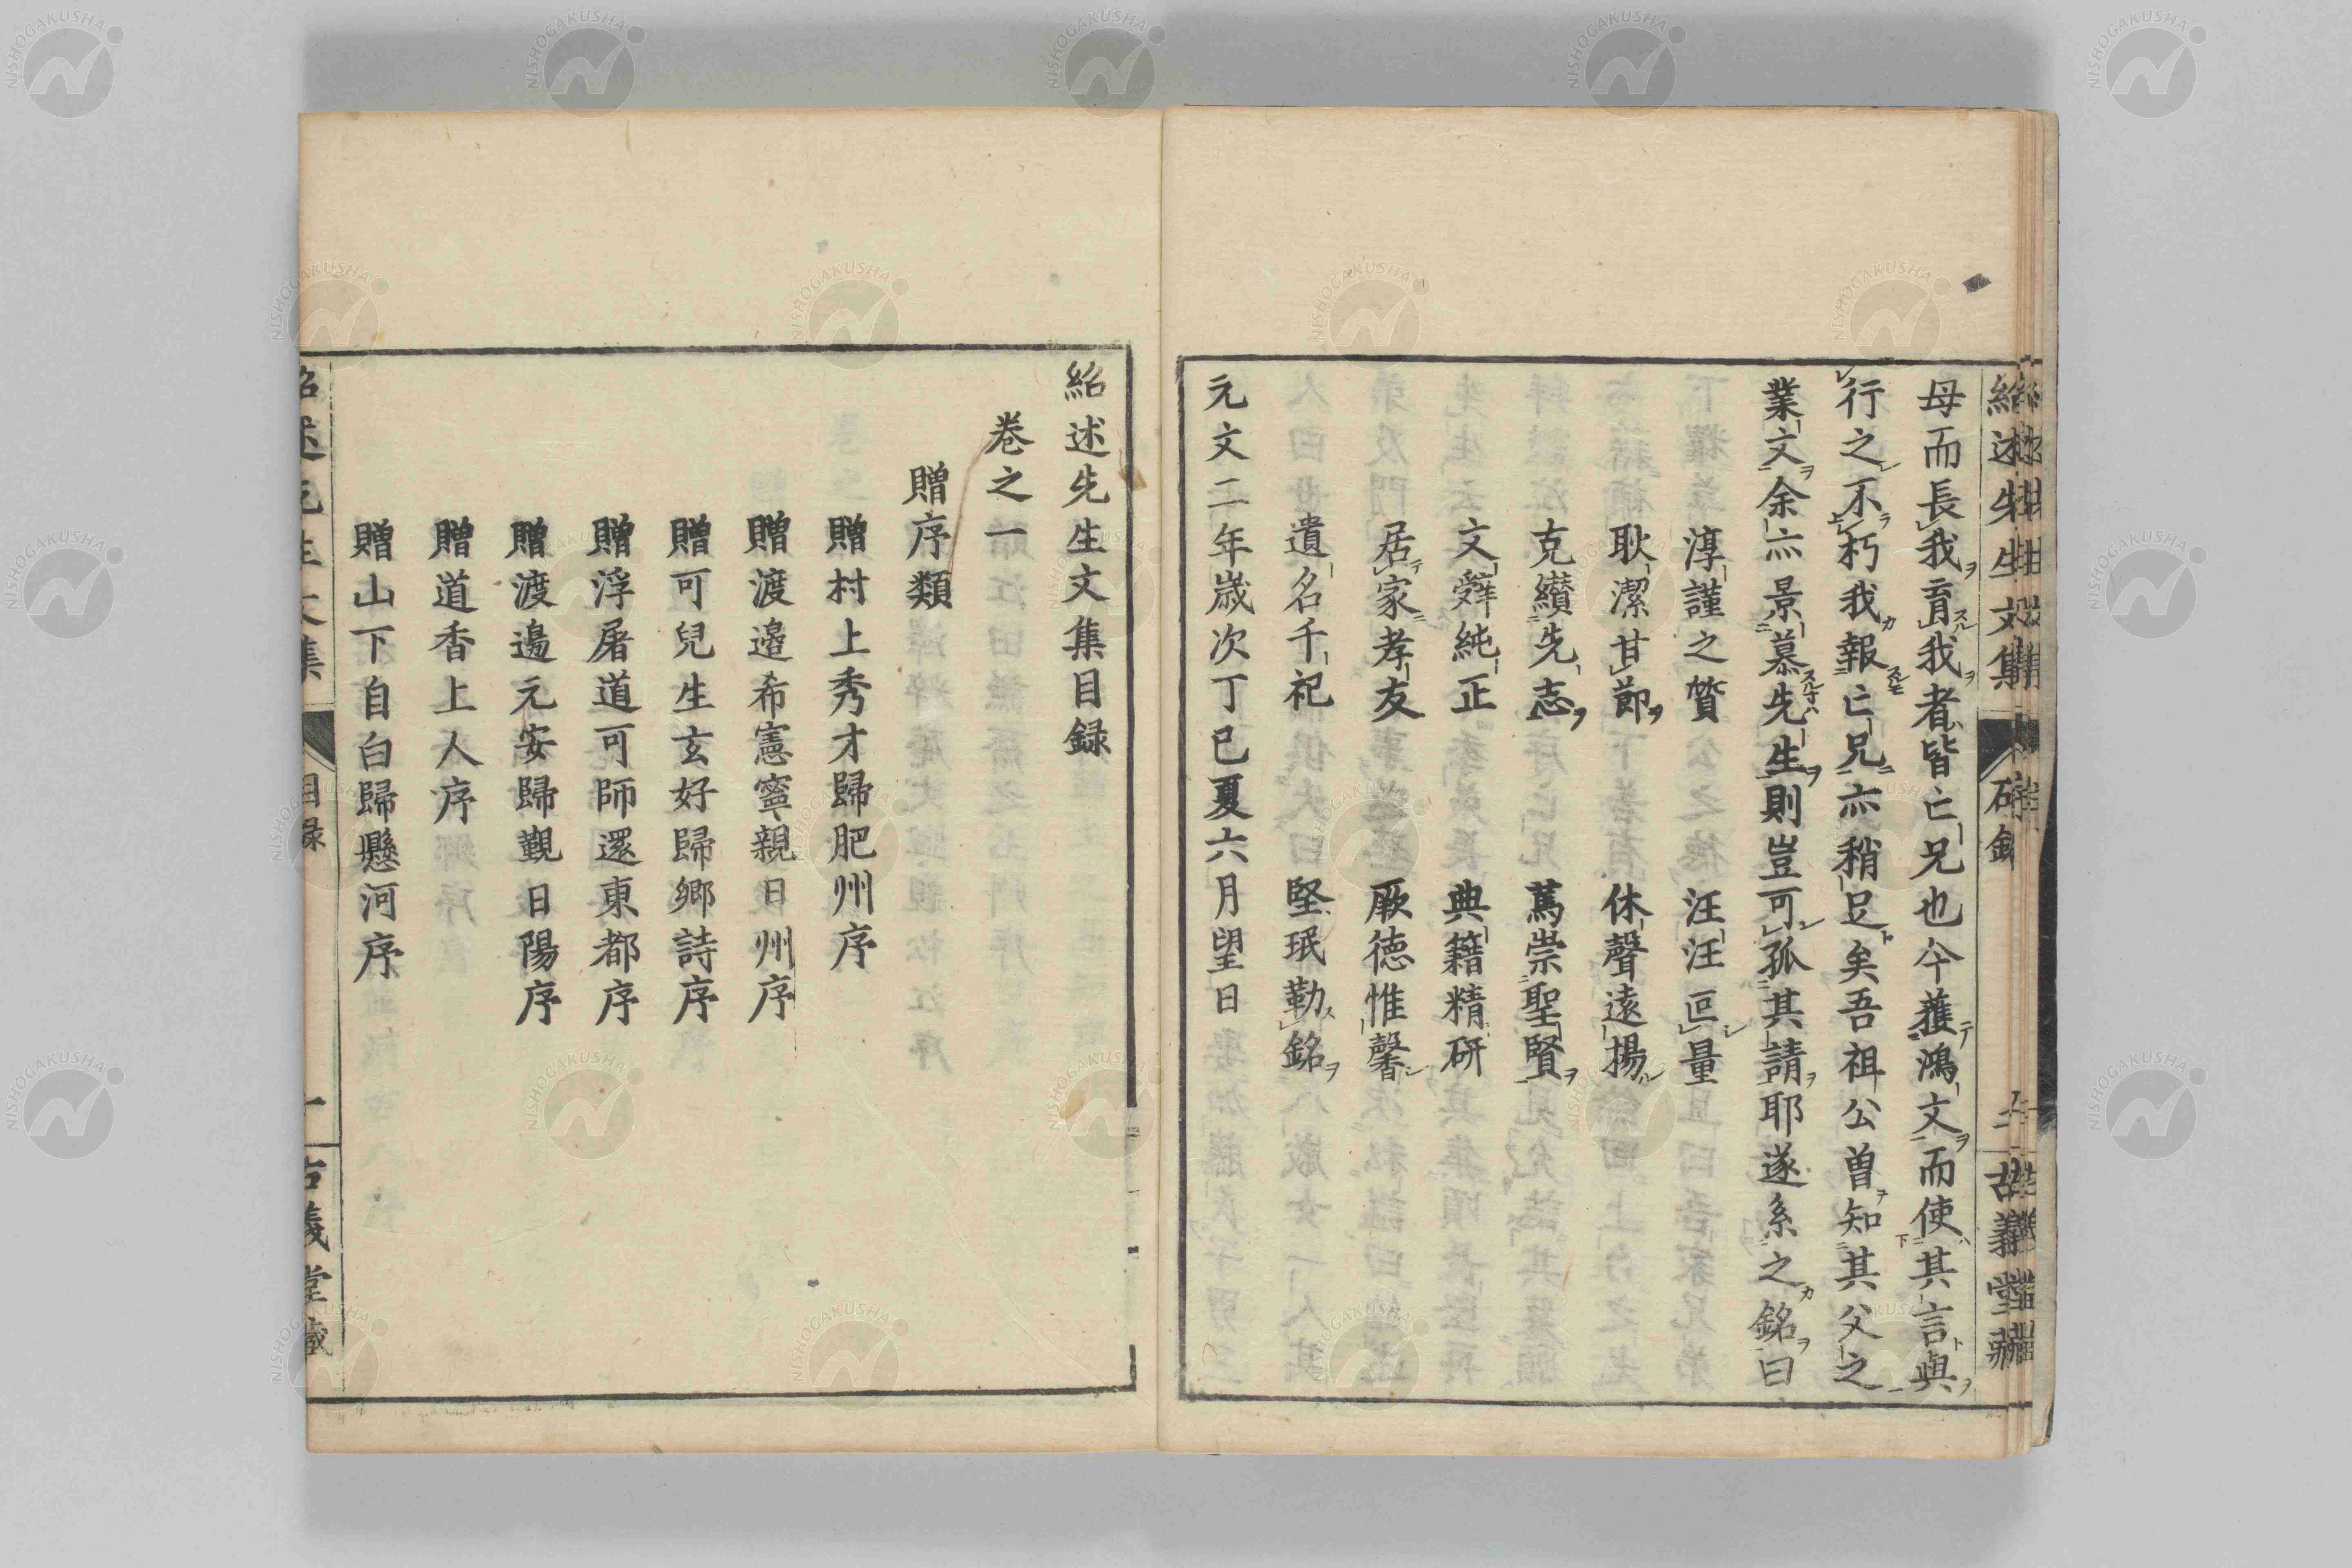 紹述先生文集
碑銘
古義堂藏
母而長我育我者皆亡兄也今蒦鴻文而使其言與
行之不朽我報亡兄亦稍足矣吾祖公曽知其父之
業文余亦景慕先生則豈可孤其請耶遂系之銘曰
淳謹之質 汪汪叵量
耿潔甘節 休聲遠揚
克纘先志 蔿崇聖賢
文辤純正 典籍精研
居家孝友 厥德惟馨
遺名千祀 堅珉勒銘
元文二年歳次丁巳夏六月望日
紹述先生文集目録
卷之一
贈序類
贈村上秀才歸肥州序
贈渡邉希憲寧親日州序
贈可兒生玄好歸鄉詩序
贈浮屠道可師還東都序
贈渡邊元安歸覲日陽序
贈道香上人序
贈山下自白歸懸河序
紹述先生文集
目録
一
古義堂藏
NISHOGAKUSHA